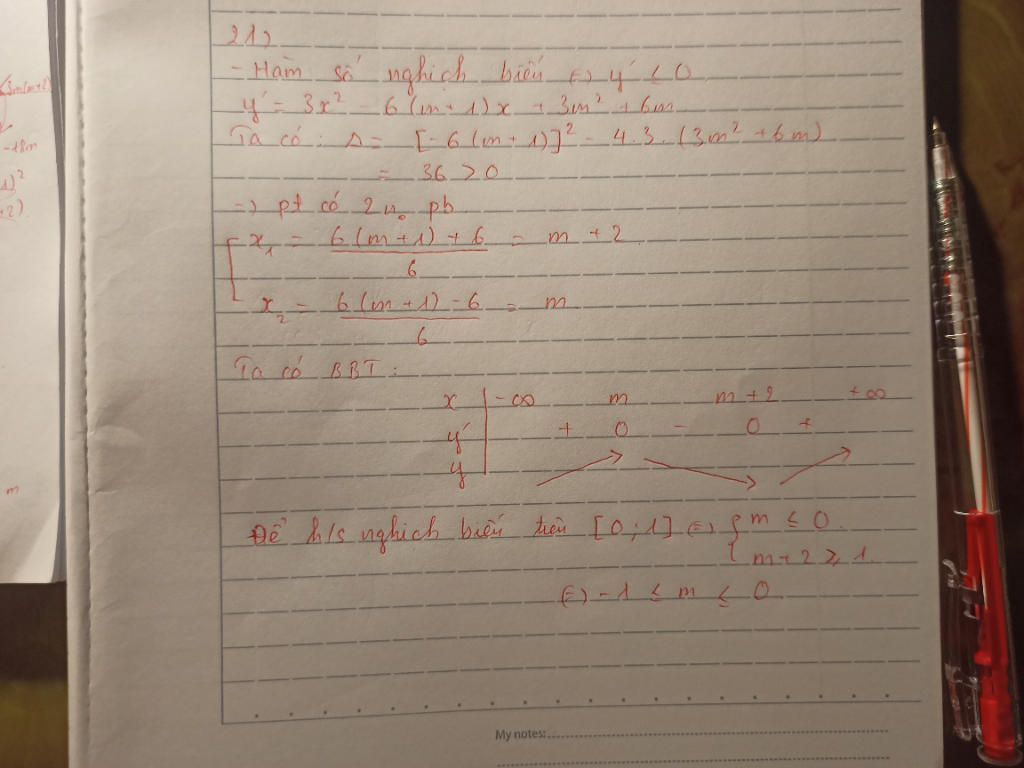 3m(m+2)
-18m
1)²
+2)
m
21,
- Hàm số nghịch biến (=) y' ≤ 0
y' = 3x² - 6(m+1)x + 3m² + 6m
Ta có : Δ = [-6(m+1)]² - 4.3.(3m² + 6m)
= 36 > 0
=) pt có 2 n₀ pb
x₁ = 6(m+1)+6 / 6 = m + 2
x₂ = 6(m+1)-6 / 6 = m
Ta có BBT :
x -∞ m m+2 +∞
y' + 0 - 0 +
y
Để h/s nghịch biến trên [0;1] (=) { m ≤ 0
m+2 ≥ 1
(=) -1 ≤ m ≤ 0
My notes: